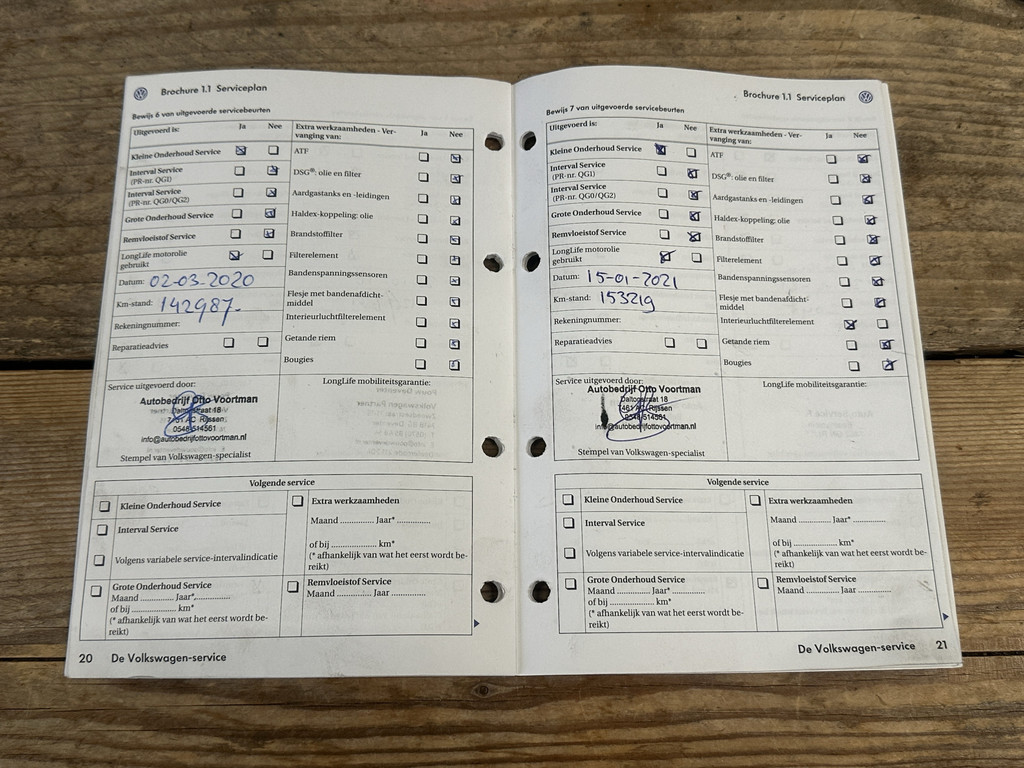 Brochure 1.1 Serviceplan
Bewijs 6 van uitgevoerde servicebeurten
Uitgevoerd is: Ja Nee
Kleine Onderhoud Service
Interval Service
(PR-nr. QG1)
Interval Service
(PR-nr. QG0/QG2)
Grote Onderhoud Service
Remvloeistof Service
LongLife motorolie
gebruikt
Datum: 02-03-2020
Km-stand: 142987.-
Rekeningnummer:
Reparatieadvies
Extra werkzaamheden - Ver-
vanging van: Ja Nee
ATF
DSG®: olie en filter
Aardgastanks en -leidingen
Haldex-koppeling: olie
Brandstoffilter
Filterelement
Bandenspanningssensoren
Flesje met bandenafdicht-
middel
Interieurluchtfilterelement
Getande riem
Bougies
Service uitgevoerd door:
Autobedrijf Otto Voortman
Daltonstraat 18
Rijssen
0548-514561
info@autobedrijfottovoortman.nl
Stempel van Volkswagen-specialist
LongLife mobiliteitsgarantie:
Volgende service
Kleine Onderhoud Service
Interval Service
Volgens variabele service-intervalindicatie
Grote Onderhoud Service
Maand ........... Jaar*...........
of bij ........... km*
(* afhankelijk van wat het eerst wordt be-
reikt)
Extra werkzaamheden
Maand ........... Jaar* ...........
of bij ........... km*
(* afhankelijk van wat het eerst wordt be-
reikt)
Remvloeistof Service
Maand ........... Jaar ...........
20 De Volkswagen-service
Brochure 1.1 Serviceplan
Bewijs 7 van uitgevoerde servicebeurten
Uitgevoerd is: Ja Nee
Kleine Onderhoud Service
Interval Service
(PR-nr. QG1)
Interval Service
(PR-nr. QG0/QG2)
Grote Onderhoud Service
Remvloeistof Service
LongLife motorolie
gebruikt
Datum: 15-01-2021
Km-stand: 153219
Rekeningnummer:
Reparatieadvies
Extra werkzaamheden - Ver-
vanging van: Ja Nee
ATF
DSG®: olie en filter
Aardgastanks en -leidingen
Haldex-koppeling: olie
Brandstoffilter
Filterelement
Bandenspanningssensoren
Flesje met bandenafdicht-
middel
Interieurluchtfilterelement
Getande riem
Bougies
Service uitgevoerd door:
Autobedrijf Otto Voortman
Daltonstraat 18
7461 AC Rijssen
0548-514561
info@autobedrijfottovoortman.nl
Stempel van Volkswagen-specialist
LongLife mobiliteitsgarantie:
Volgende service
Kleine Onderhoud Service
Interval Service
Volgens variabele service-intervalindicatie
Grote Onderhoud Service
Maand ........... Jaar* ...........
of bij ........... km*
(* afhankelijk van wat het eerst wordt be-
reikt)
Extra werkzaamheden
Maand ........... Jaar* ...........
of bij ........... km*
(* afhankelijk van wat het eerst wordt be-
reikt)
Remvloeistof Service
Maand ........... Jaar ...........
De Volkswagen-service 21